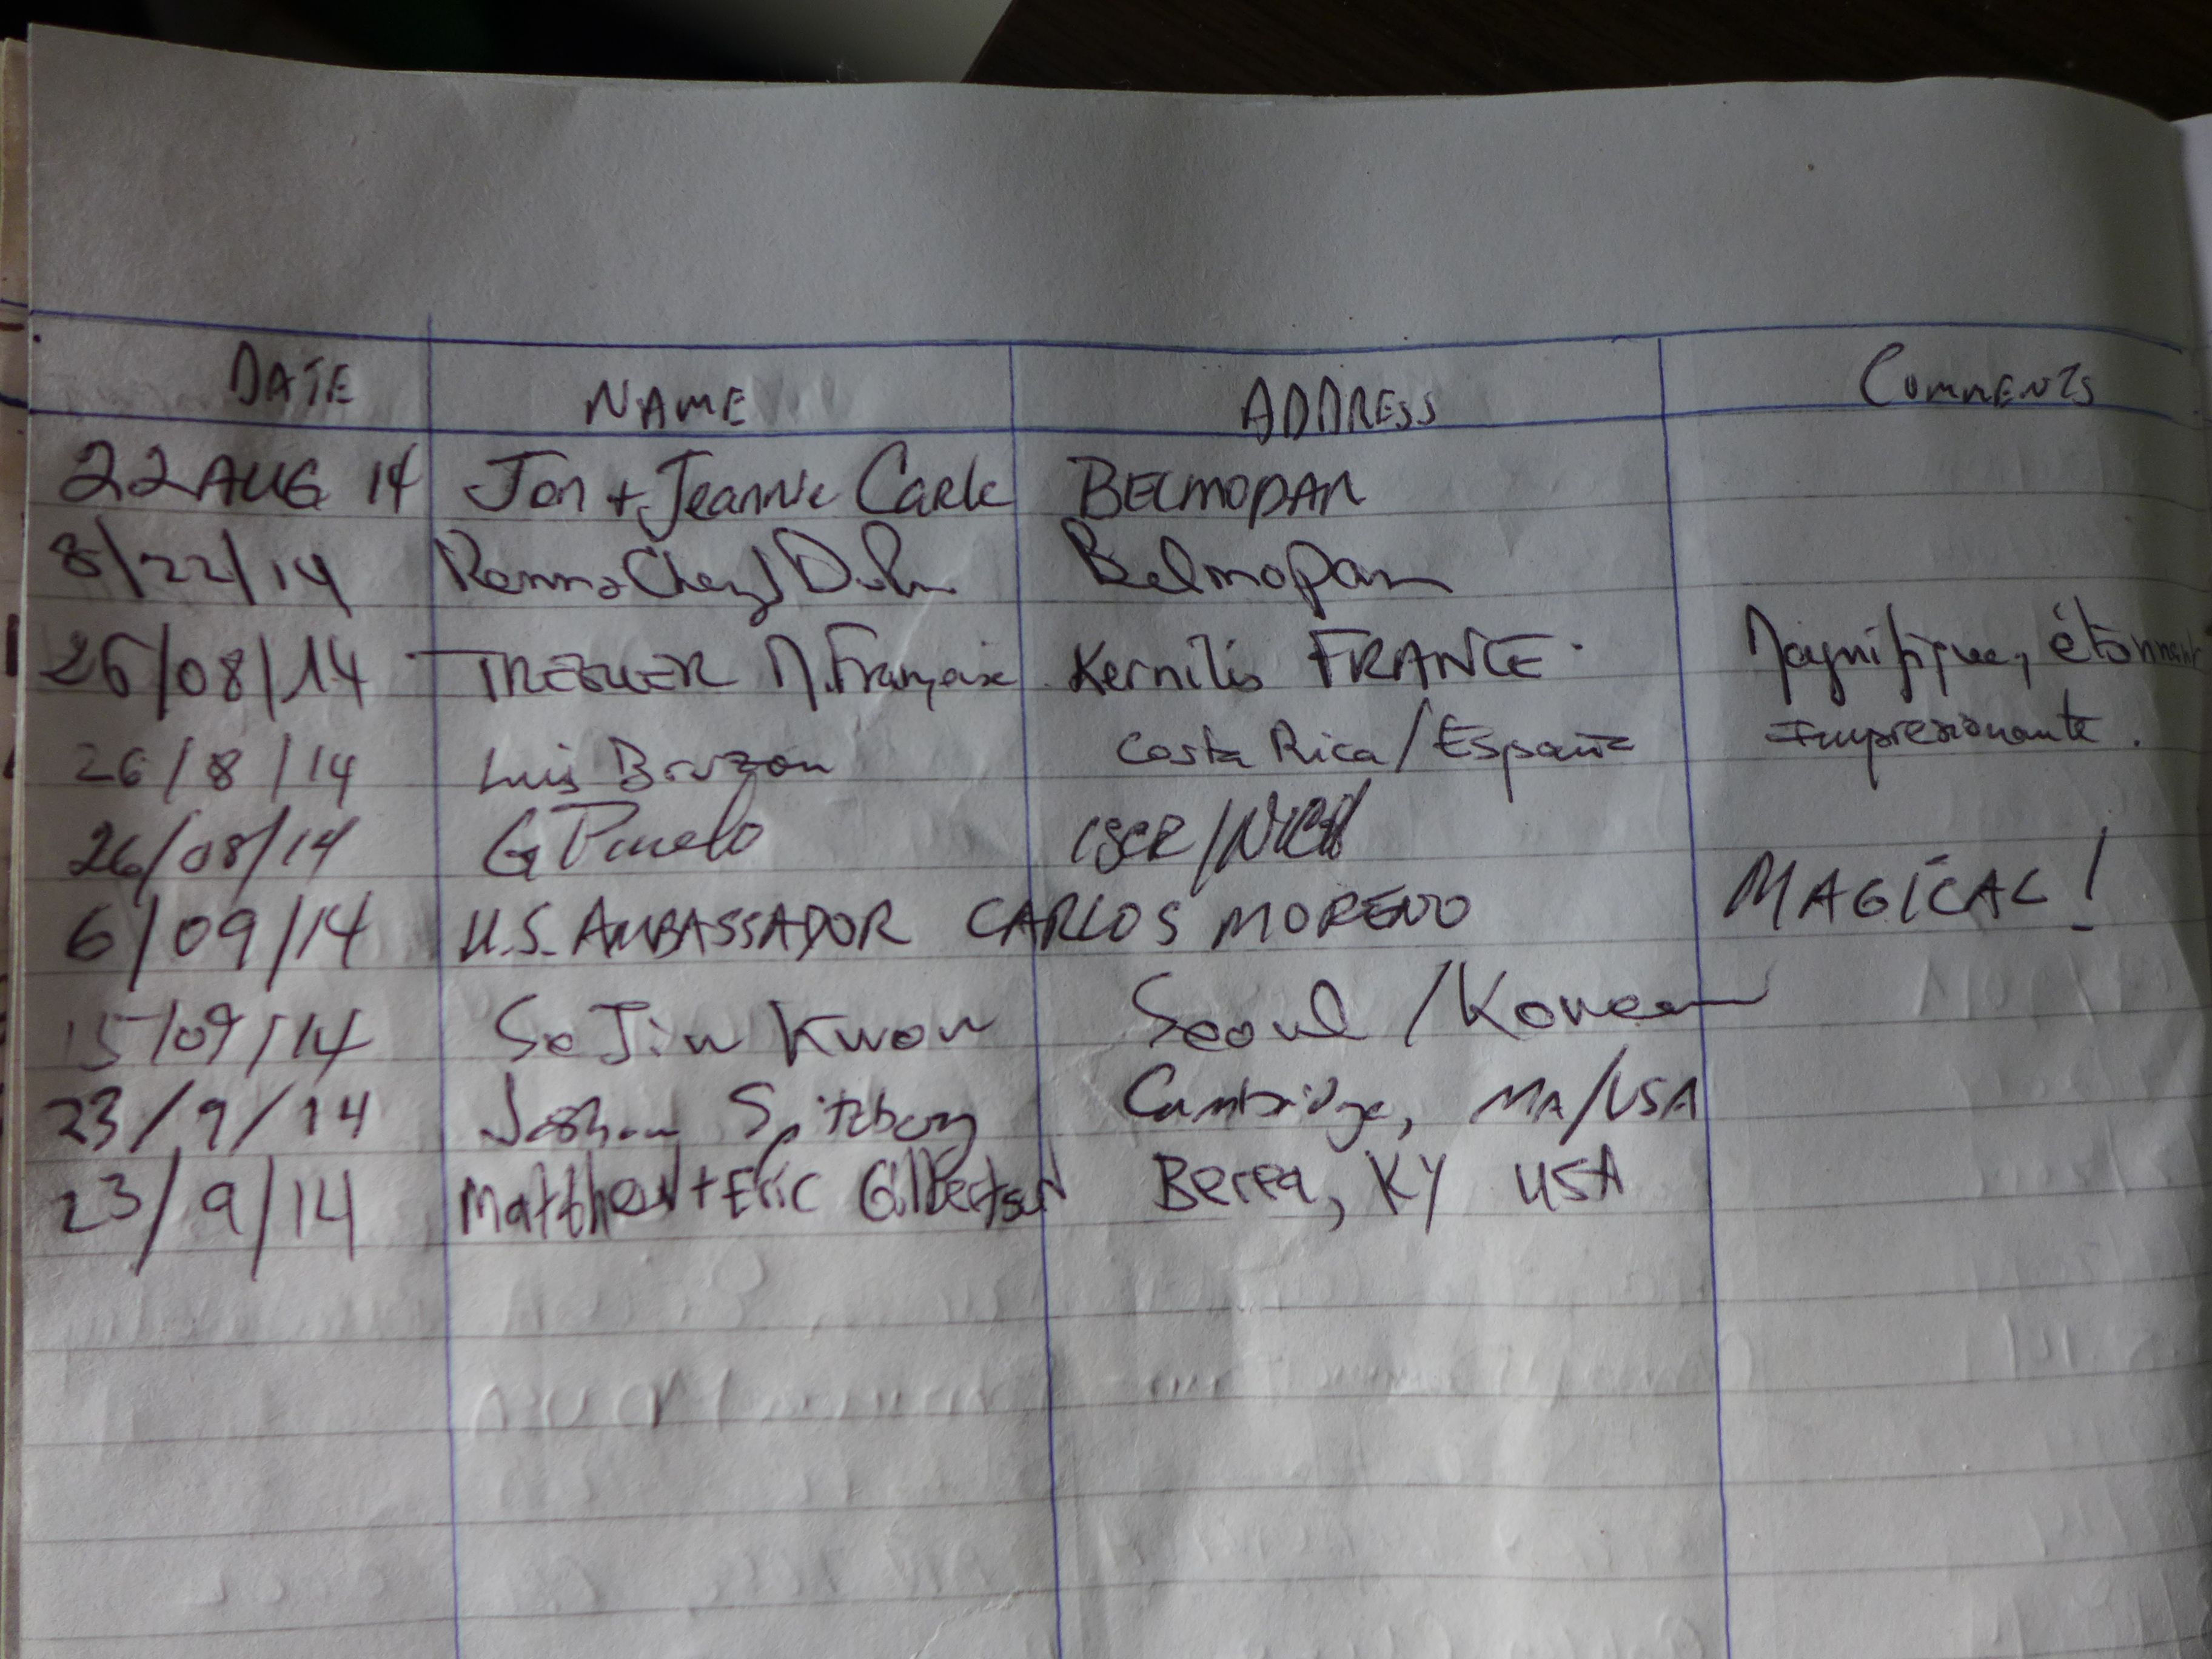 DATE NAME ADDRESS COMMENTS
22 AUG 14 Jon + Jeannie Carle BELMOPAN
8/22/14 Belmopan
26/08/14 M. Françoise Kernilis FRANCE Magnifique, étonnant
26/8/14 Luis Bruzon Costa Rica/España Impresionante.
26/08/14 G
6/09/14 U.S. AMBASSADOR CARLOS MORENO MAGICAL!
15/09/14 So Jin Kwon Seoul / Korea
23/9/14 Joshua Spitzberg Cambridge, MA/USA
23/9/14 Matthew + Eric Gilbertson Berea, KY USA